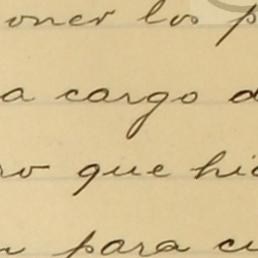 oner los p
a cargo d
ro que hi
n para cu